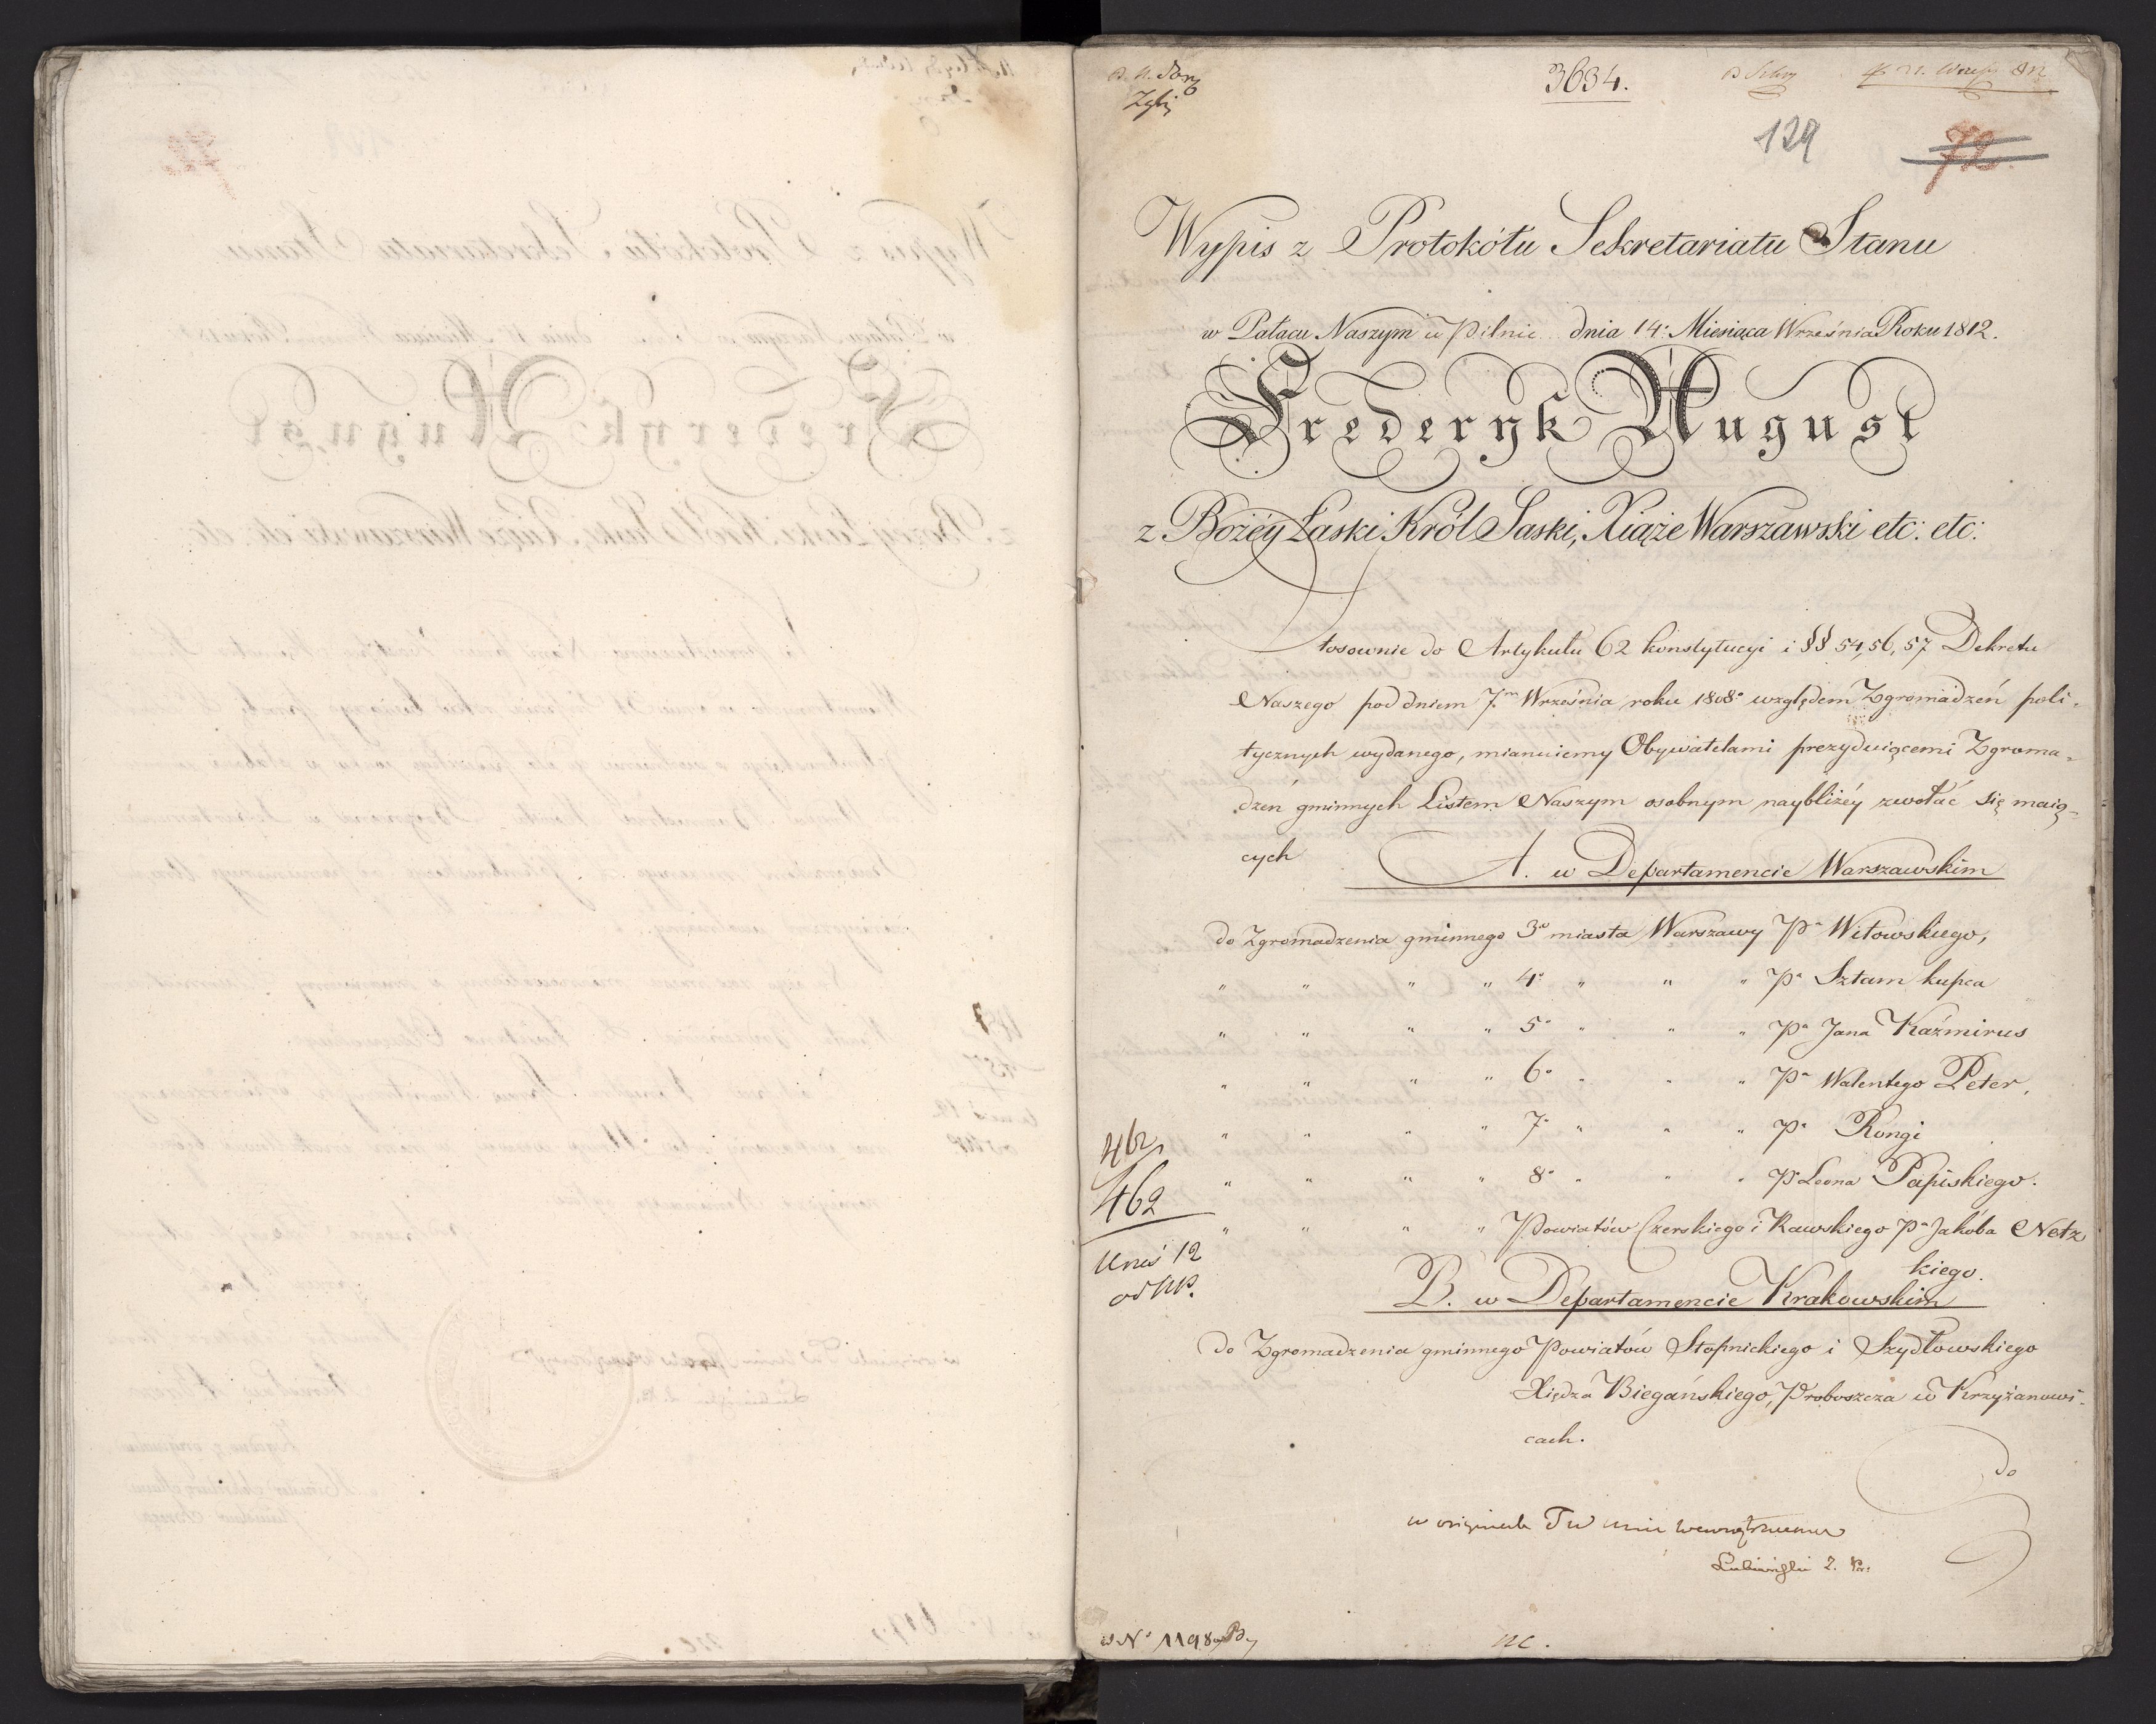 3634.
129
72
Wypis z Protokółu Sekretariatu Stanu
w Pałacu Naszym w Pilnic dnia 14. Miesiąca Września Roku 1812.
Frederyk August
z Bożéy Łaski Król Saski, Xiąże Warszawski etc: etc:
Stosownie do Artykułu 62 konstytucyi i §§ 54, 56, 57 Dekretu
Naszego pod dniem 7m Września roku 1808o względem Zgromadzeń poli-
tycznych wydanego, mianuiemy Obywatelami prezyduiącemi Zgroma-
dzeń gminnych Listem Naszym osobnym naybliżéy zwołać się maią-
cych
A. w Departamencie Warszawskim
do Zgromadzenia gminnego 3o miasta Warszawy Pa Witowskiego,
" " " " 4o " " " Pa Sztam kupca
" " " " 5o " " " Pa Jana Kaźmirus
" " " " 6o " " " Pa Walentego Peter,
" " " " 7o " " " Pa Rongi
" " " " 8o " " " Pa Leona Papiskiego.
" " " " Powiatów Czerskiego i Rawskiego Pa Jakóba Netz
kiego.
462
462
B. w Departamencie Krakowskim
do Zgromadzenia gminnego Powiatów Stopnickiego i Szydłowskiego
Xiędza Biegańskiego, Proboszcza w Krzyżanowi-
cach.
do
w originale
N° 1198